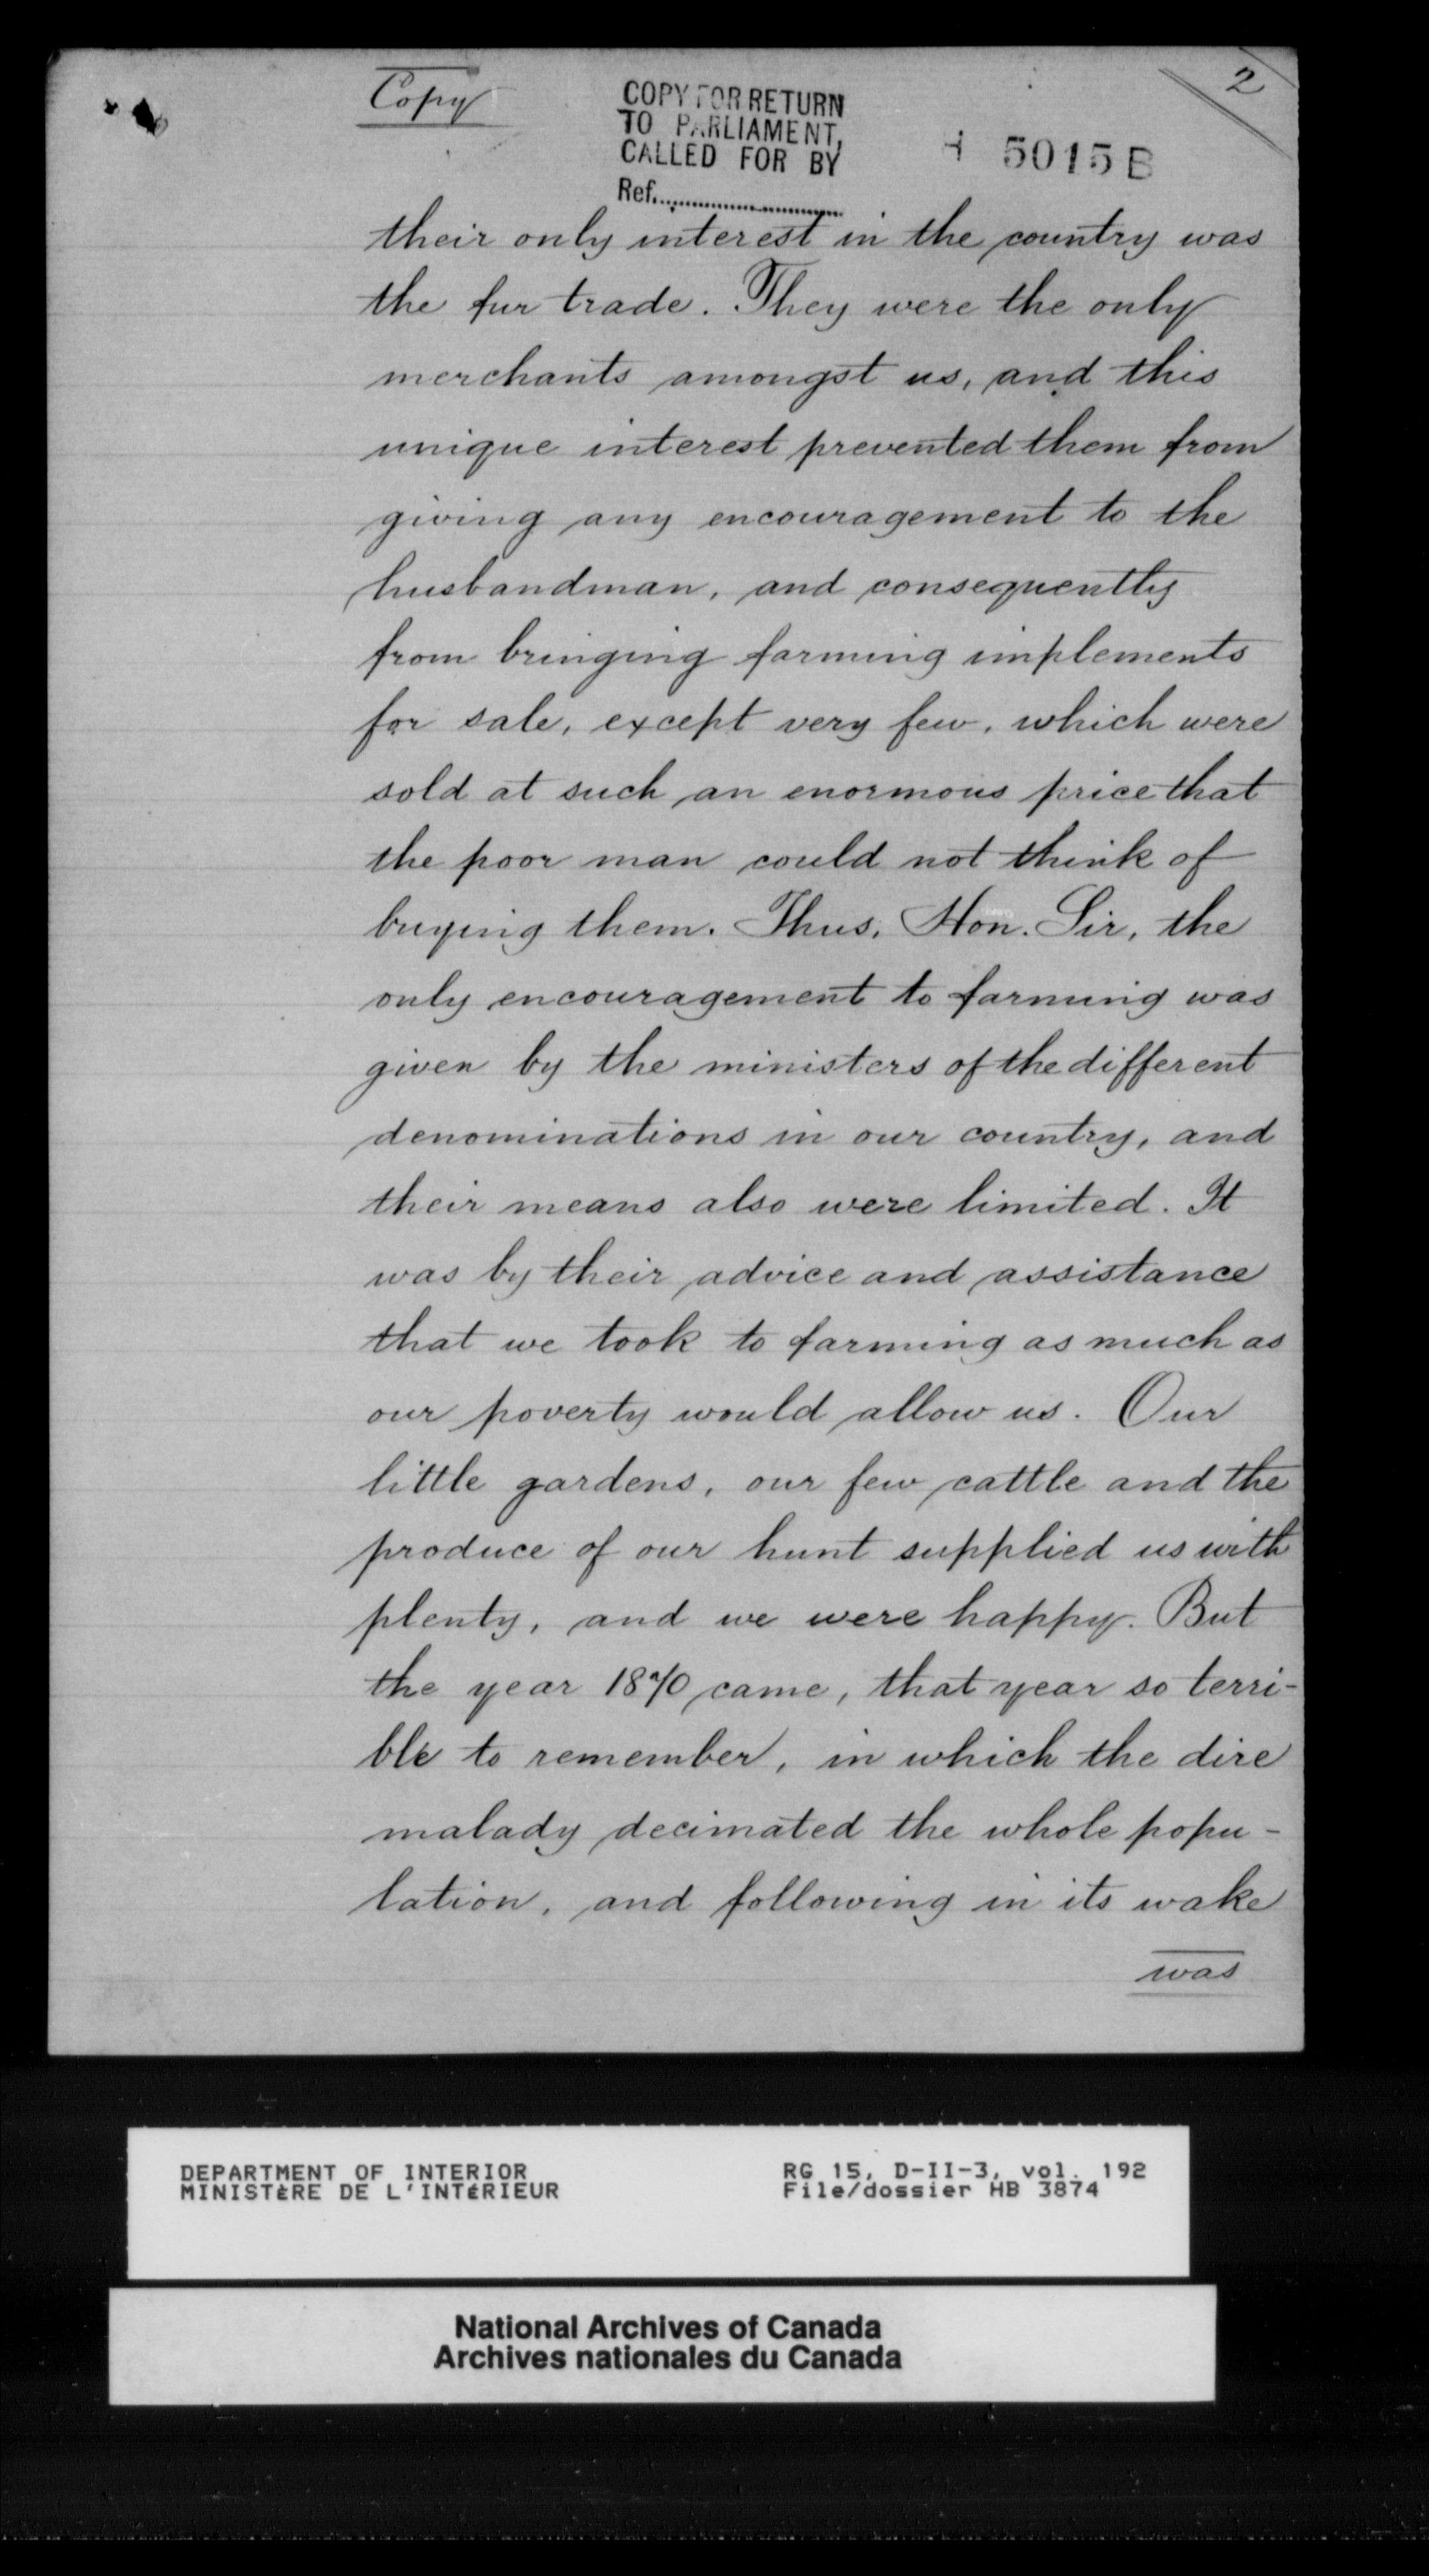 Copy
2
COPY FOR RETURN
TO PARLIAMENT,
CALLED FOR BY
Ref.
H 5015 B
their only interest in the country was
the fur trade. They were the only
merchants amongst us, and this
unique interest prevented them from
giving any encouragement to the
husbandman, and consequently
from bringing farming implements
for sale, except very few, which were
sold at such an enormous price that
the poor man could not think of
buying them. Thus, Hon. Sir, the
only encouragement to farming was
given by the ministers of the different
denominations in our country, and
their means also were limited. It
was by their advice and assistance
that we took to farming as much as
our poverty would allow us. Our
little gardens, our few cattle and the
produce of our hunt supplied us with
plenty, and we were happy. But
the year 1870 came, that year so terri-
ble to remember, in which the dire
malady decimated the whole popu-
lation, and following in its wake
was
DEPARTMENT OF INTERIOR
MINISTÈRE DE L'INTÉRIEUR
RG 15, D-II-3, vol. 192
File/dossier HB 3874
National Archives of Canada
Archives nationales du Canada